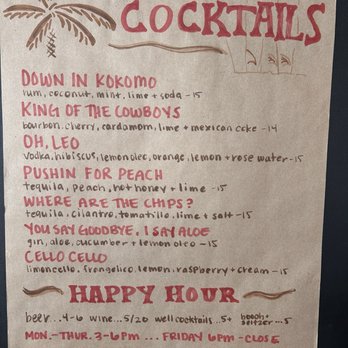 COCKTAILS
DOWN IN KOKOMO
rum, coconut, mint, lime + soda - 15
KING OF THE COWBOYS
bourbon, cherry, cardamom, lime + mexican coke - 14
OH, LEO
vodka, hibiscus, lemon oleo, orange, lemon + rose water - 15
PUSHIN FOR PEACH
tequila, peach, hot honey + lime - 15
WHERE ARE THE CHIPS?
tequila, cilantro, tomatillo, lime + salt - 15
YOU SAY GOODBYE, I SAY ALOE
gin, aloe, cucumber + lemon oleo - 15
CELLO CELLO
limoncello, frangelico, lemon, raspberry + cream - 15
HAPPY HOUR
beer...4-6 wine...5/20 well cocktails...5+ booch+ seltzer...5
MON.-THUR. 3-6PM ... FRIDAY 6PM - CLOSE